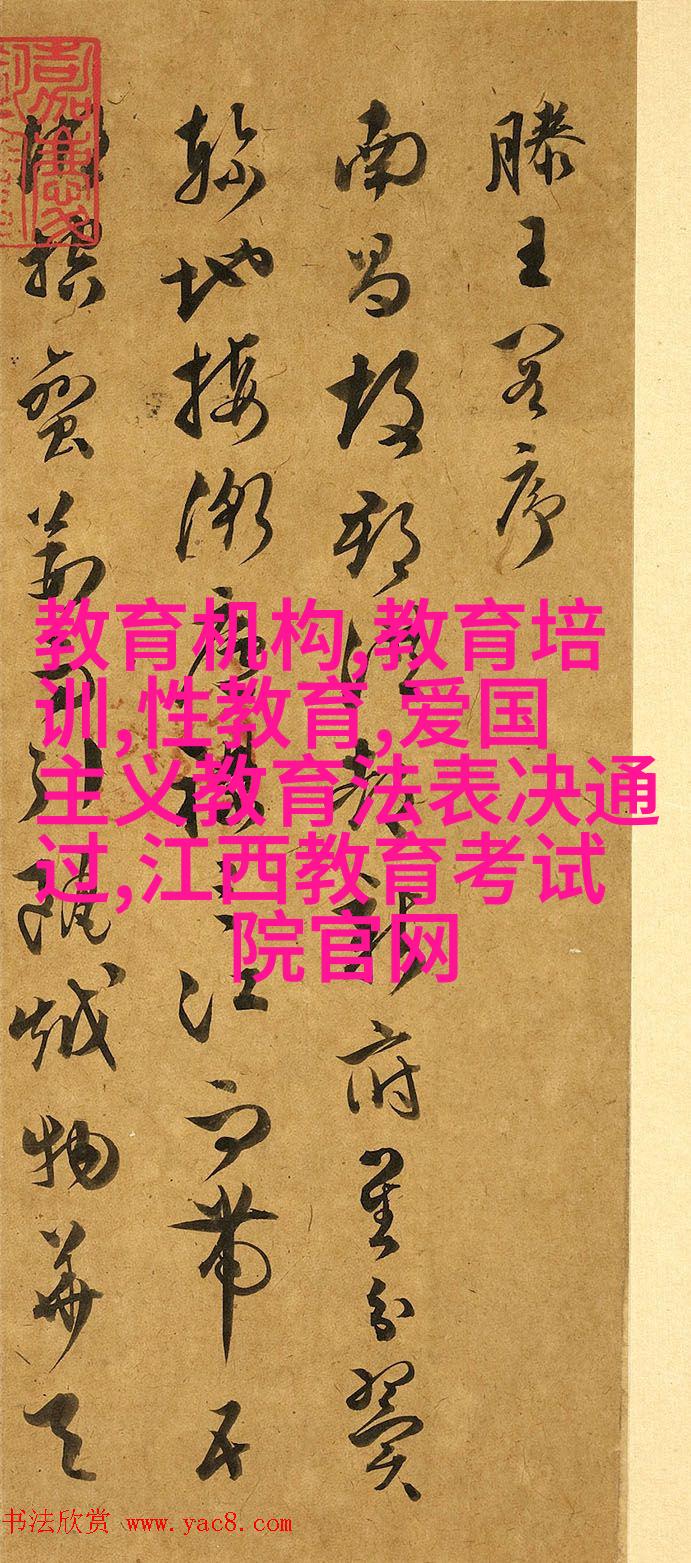 滕王閣序
南昌故郡洪都新府星分翼
軫地接衡廬襟三江而帶五
湖控蠻荊而引甌越物華天
教育机构,教育培
训,性教育,爱国
主义教育法表决通
过,江西教育考试
院官网
书法欣赏 www.yac8.com